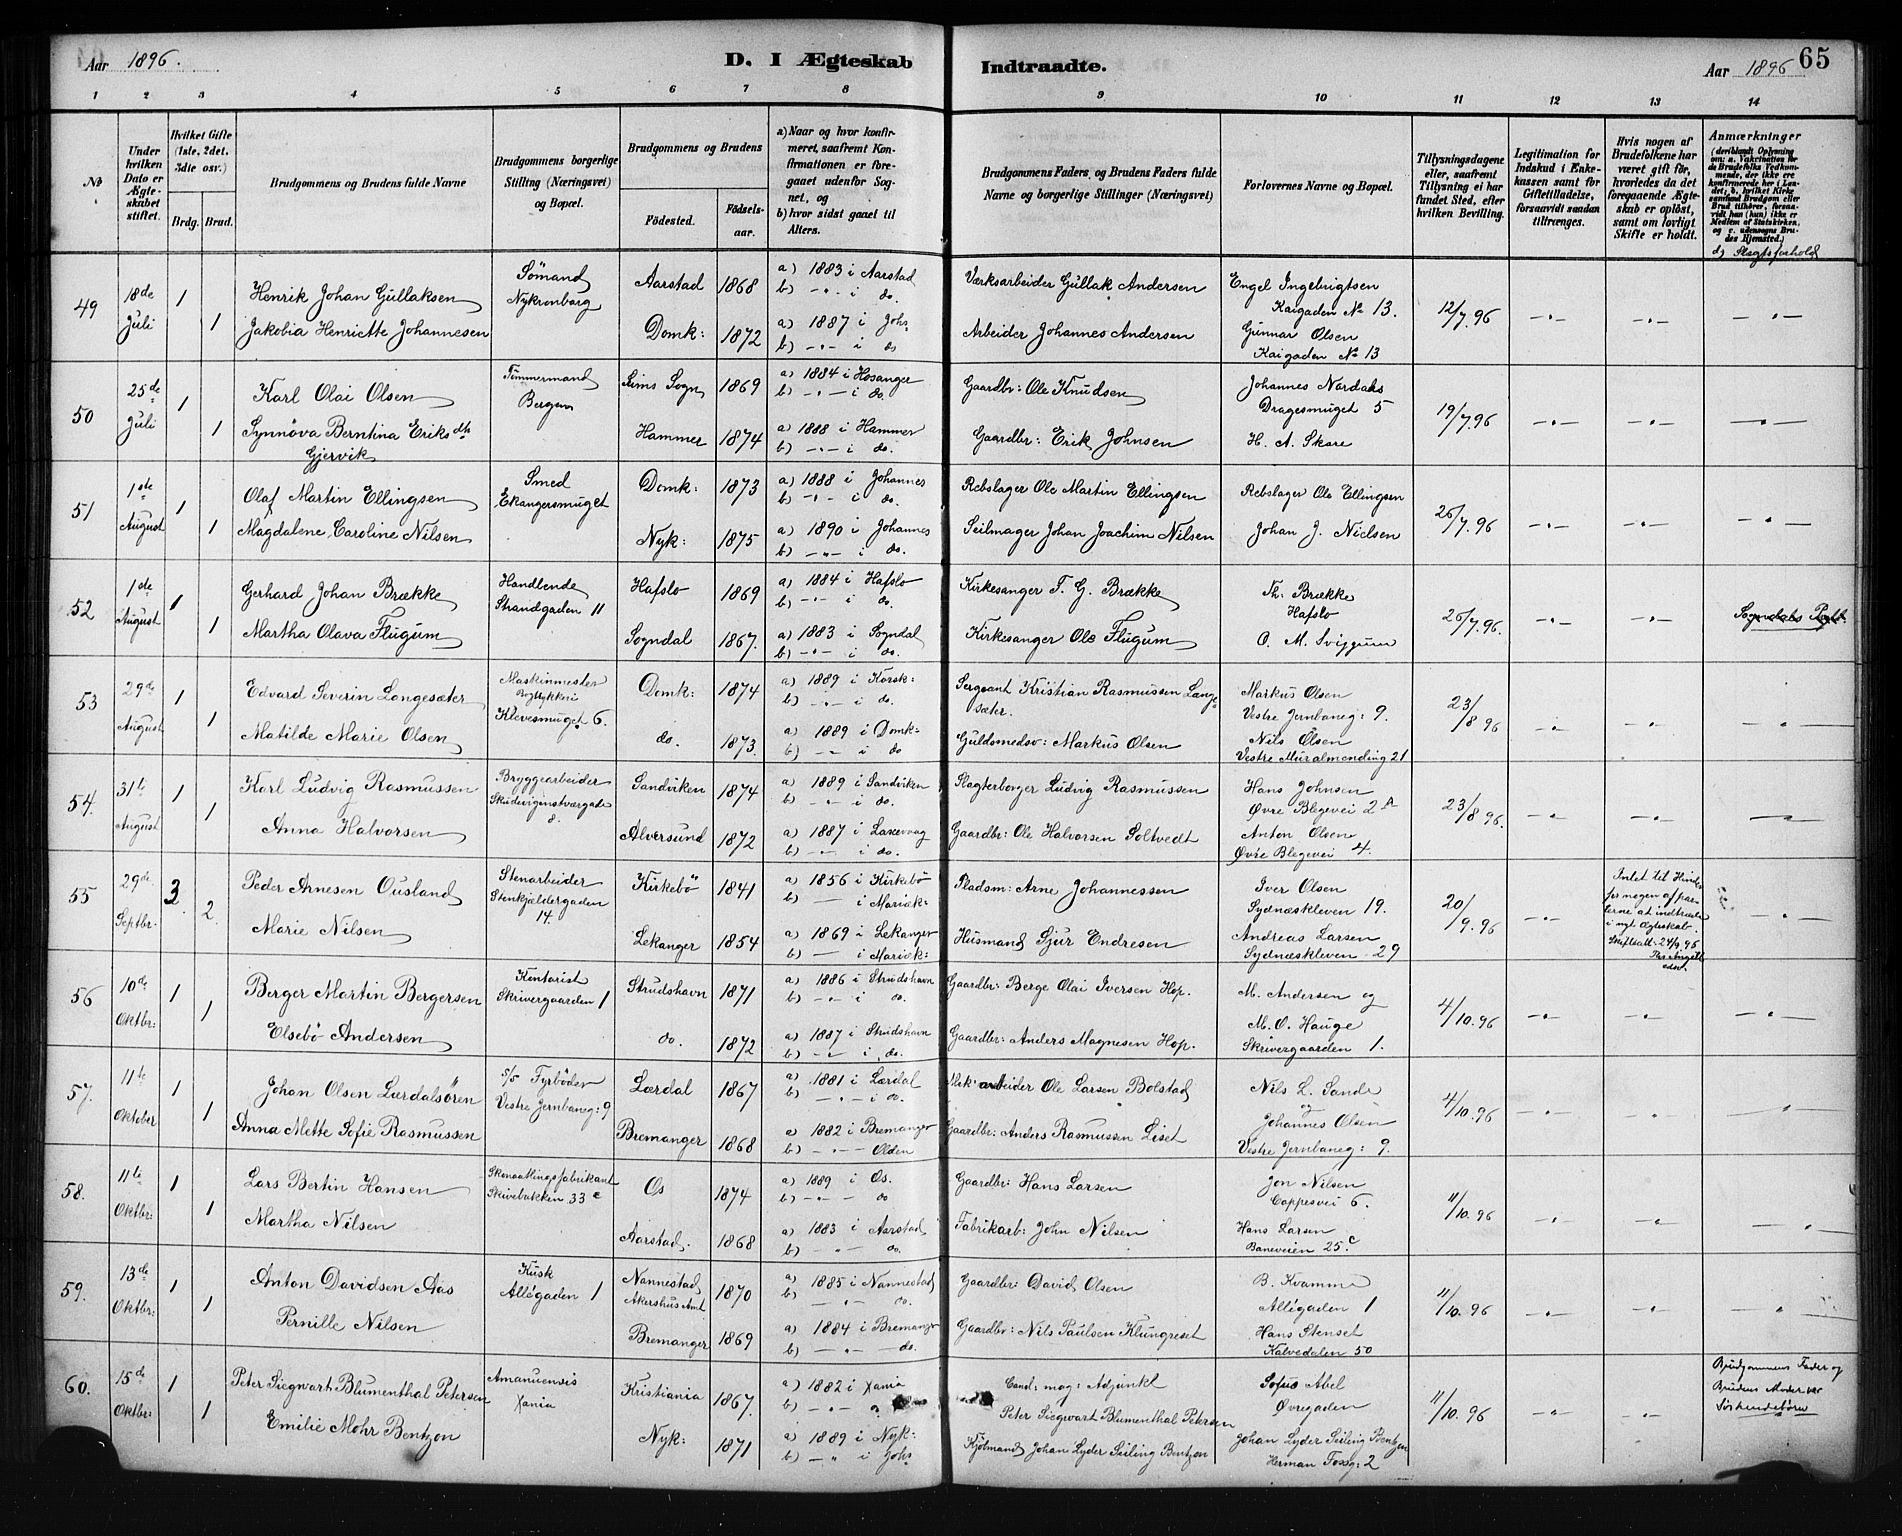 Aar 1896. D. I Ægteskab Indtraadte. Aar 1896 65
1 2 3 4 5 6 7 8 9 10 11 12 13 14
No
Under hvilken Dato er Ægteskabet stiftet.
Hvilket Gifte (1ste, 2det, 3die osv.)
Brdg. Brud.
Brudgommens og Brudens fulde Navne
Brudgommens borgerlige Stilling (Næringsvei) og Bopæl.
Brudgommens og Brudens
Fødested. Fødselsaar.
a) Naar og hvor konfirmeret, saafremt Konfirmationen er foregaaet udenfor Sognet, og
b) hvor sidst gaaet til Alters.
Brudgommens Faders og Brudens Faders fulde Navne og borgerlige Stillinger (Næringsvei)
Forlovernes Navne og Bopæl.
Tillysningsdagene eller, saafremt Tillysning ei har fundet Sted, efter hvilken Bevilling.
Legitimation for Indskud i Enkekassen samt for Giftetilladelse, forsaavidt saadan tiltrænges.
Hvis nogen af Brudefolkene har været gift før, hvorledes da det foregaaende Ægteskab er opløst, samt om lovligt Skifte er holdt.
Anmærkninger
(deriblandt Oplysning om: a. Vakcination for de Brudefolks Vedkommende, der ikke ere konfirmerede her i Landet; b. hvilket Kirkesamfund Brudgom eller Brud tilhører, forsaavidt han (hun) ikke er Medlem af Statskirken, og c. udensogns Brudes Hjemsted.)
d) Slægtsforhold
49 18de Juli 1 Henrik Johan Gullaksen Sömand Nykronborg Aarstad 1868 a) 1883 i Aarstad b) -"- i do. Værksarbeider Gullak Andersen Engel Ingebrigtsen Kaigaden No 13. 12/7.96
1 Jakobia Henriette Johannesen Domk: 1872 a) 1887 i Johs b) -"- i do Arbeider Johannes Andersen Gunnar Olsen Kaigaden No 13
50 25de Juli 1 Karl Olai Olsen Tømmermand Bergen Seims Sogn 1869 a) 1884 i Hosanger b) -"- i do. Gaardbr: Ole Knudsen Johannes Nordaas Dragesmuget 5 19/7.96
1 Synnöva Berntina Eriksdtr Gjervik Hammer 1874 a) 1888 i Hammer b) -"- i do. Gaardbr: Erik Johnsen H. A. Skare
51 1ste August 1 Olaf Martin Ellingsen Smed Ekangersmuget Domk: 1873 a) 1888 i Johannes b) -"- i do. Rebslager Ole Martin Ellingsen Rebslager Ole Ellingsen 26/7.96
1 Magdalene Caroline Nilsen Nyk: 1875 a) 1890 i Johannes b) -"- i do. Seilmager Johan Joachim Nilsen Johan J. Nielsen
52 1de August 1 Gerhard Johan Brække Handlende Strandgaden 11 Hafslo 1869 a) 1884 i Hafslo b) -"- i do. Kirkesanger T. G. Brække Th. Brække Hafslo 26/7.96.
1 Martha Olava Flugum Sogndal 1867. a) 1883 i Sogndal b) -"- i do. Kirkesanger Ole Flugum O. M. Sviggum
53 29de August 1 Edvard Severin Langesæter Maskinmester Klevesmuget 6. Domk: 1874 a) 1889 i Korsk: b) -"- i do. Sergeant Kristian Rasmussen Langesæter. Markus Olsen Vestre Jernbaneg: 9. 23/8 96
1 Matilde Marie Olsen do. 1873. a) 1889 i Domk: b) -"- i do Guldsmedsv: Markus Olsen Nils Olsen Vestre Muralmending 21
54. 31te August 1 Karl Ludvig Rasmussen Bryggearbeider 8. Sandviken 1874 a) 1889 i Sandviken b) -"- i do. Slagterborger Ludvig Rasmussen Hans Johnsen Øvre Blegevei 2A 23/8 96.
1 Anna Halvorsen Alversund 1872 a) 1887 i Laxevaag b) -"- i do. Gaardbr: Ole Halvorsen Soltvedt Anton Olsen Øvre Blegevei 4.
55 29de Septbr. 3 Peder Arnesen Ousland Stenarbeider Stenkjældergaden 14 Kirkebö 1841 a) 1856 i Kirkebö b) — i Mariæk: Pladsm: Arne Johannessen Iver Olsen Sydnæskleven 19. 20/9.96 Intet til Hinder for nogen af parterne at indtræde i nyt Ægteskab.
2 Marie Nilsen Lekanger 1854 a) 1869 i Lekanger b) — i Mariæk: Husmand Sjur Endresen Andreas Larsen Sydnæskleven 29
56 10de Oktbr: 1 Berger Martin Bergersen Kontorist Skrivergaarden 1 Strudshavn 1871 a) 1886 i Strudshavn b) -"- i do. Gaardbr: Berge Olai Iversen Hop. M. Andersen og 4/10.96
1 Elsebö Andersen do. 1872 a) 1887 i Strudshavn b) -"- i do. Gaardbr: Anders Magnesen Hop. M. O. Hauge Skrivergaarden 1.
57. 11te Oktober 1 Johan Olsen Lærdalsören s/s Fyrböder Vestre Jernbaneg: 9 Lærdal 1867 a) 1881 i Lærdal b) -"- i do. arbeider Ole Larsen Bolstad Nils L. Sande og 4/10.96
1 Anna Mette Sofie Rasmussen Bremanger 1868 a) 1882 i Bremanger b) -"- Olden Gaardbr: Anders Rasmussen Liset Johannes Olsen Vestre Jernbaneg: 9.
58. 11te Oktbr: 1 Lars Bertin Hansen Skivebakken 33 c Os 1874 a) 1889 i Os. b) -"- do Gaardbr: Hans Larsen Jon Nilsen Cappesvei 6. 11/10.96
1 Martha Nilsen Aarstad. 1868 a) 1883 i Aarstad b) -"- do. Fabrikarb: John Nilsen Hans Larsen Baneveien 25.c
59. 13de Oktbr: 1 Anton Davidsen Aas Kusk Allégaden 1 Nannestad Akershus Amt 1870 a) 1885 i Nannestad b) -"- do. Gaardbr: David Olsen B. Kvamme Allégaden 1 11/10.96
1 Pernille Nilsen Bremanger 1869 a) 1884 i Bremanger b) -"- do. Gaardbr: Nils Paulsen Klungreset Hans Stenset Kalvedalen 50
60. 15de Oktbr: 1 Peter Siegwart Blumenthal Petersen Amanuensis Xania Kristiania 1867. a) 1882 i Xania b) -"- " Cand: mag: Adjunkt Peter Siegwart Blumenthal Petersen Sofus Abel Øvregaden 11/10.96 Brudgommens Fader og Brudens Moder var Søskendebörn
1 Emilie Mohr Bentzon Nyk: 1871 a) 1889 i Nyk: b) -"- i Johs Kjöbmand Johan Lyder Seiling Bentzon Johan Lyder Seiling Bentzon Herman Fossg: 2